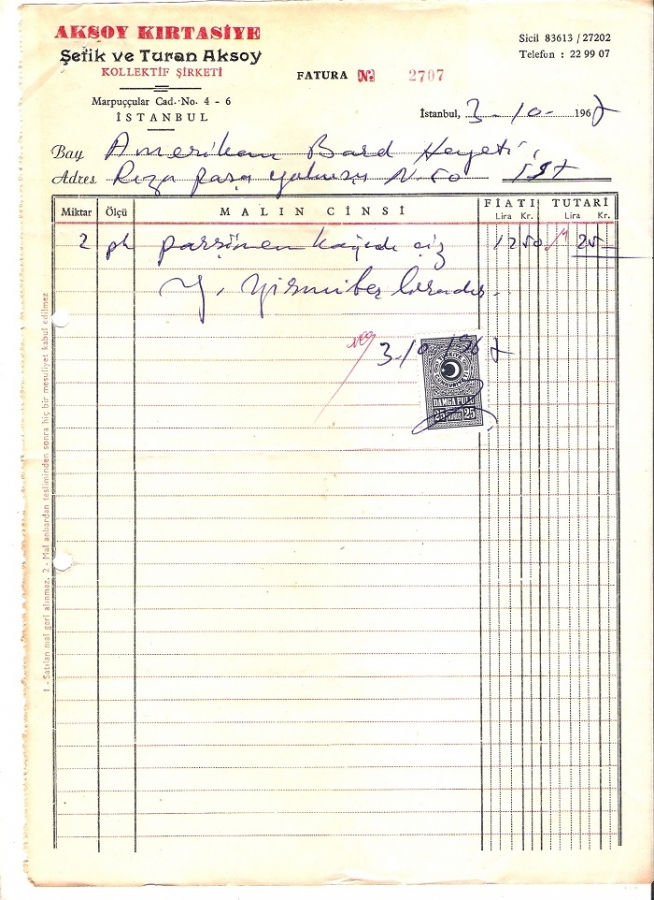 AKSOY KIRTASİYE
Şefik ve Turan Aksoy
KOLLEKTİF ŞİRKETİ
Marpuççular Cad. No. 4 - 6
İSTANBUL
FATURA No 2707
Sicil 83613 / 27202
Telefon : 22 99 07
İstanbul, 3-10-1967
Bay Amerikan Bord Heyeti,
Adres Rıza paşa yokuşu N. 50 İST
Miktar Ölçü MALIN CİNSİ FİATI Lira Kr. TUTARI Lira Kr.
2 pk parşömen kağıdı çiz 12 50 25 -
Y. Yirmibeş liradır.
3-10-1967
DAMGA PULU
25 25
1 - Satılan mal geri alınmaz. 2 - Mal anbardan tesliminden sonra hiç bir mesuliyet kabul edilmez